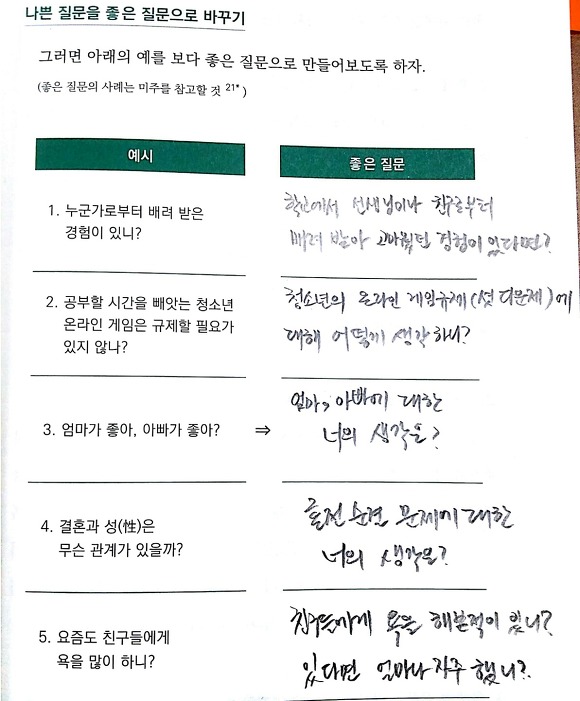 나쁜 질문을 좋은 질문으로 바꾸기
그러면 아래의 예를 보다 좋은 질문으로 만들어보도록 하자.
(좋은 질문의 사례는 미주를 참고할 것 21*)
예시
좋은 질문
1. 누군가로부터 배려 받은
경험이 있니?
학교에서 선생님이나 친구로부터
배려 받아 고마웠던 경험이 있다면?
2. 공부할 시간을 빼앗는 청소년
온라인 게임은 규제할 필요가
있지 않나?
청소년의 온라인 게임규제(셧다운제)에
대해 어떻게 생각하니?
3. 엄마가 좋아, 아빠가 좋아?
⇒
엄마, 아빠에 대한
너의 생각은?
4. 결혼과 성(性)은
무슨 관계가 있을까?
혼전 순결 문제에 대한
너의 생각은?
5. 요즘도 친구들에게
욕을 많이 하니?
친구들에게 욕을 해본적이 있니?
있다면 얼마나 자주 했니?